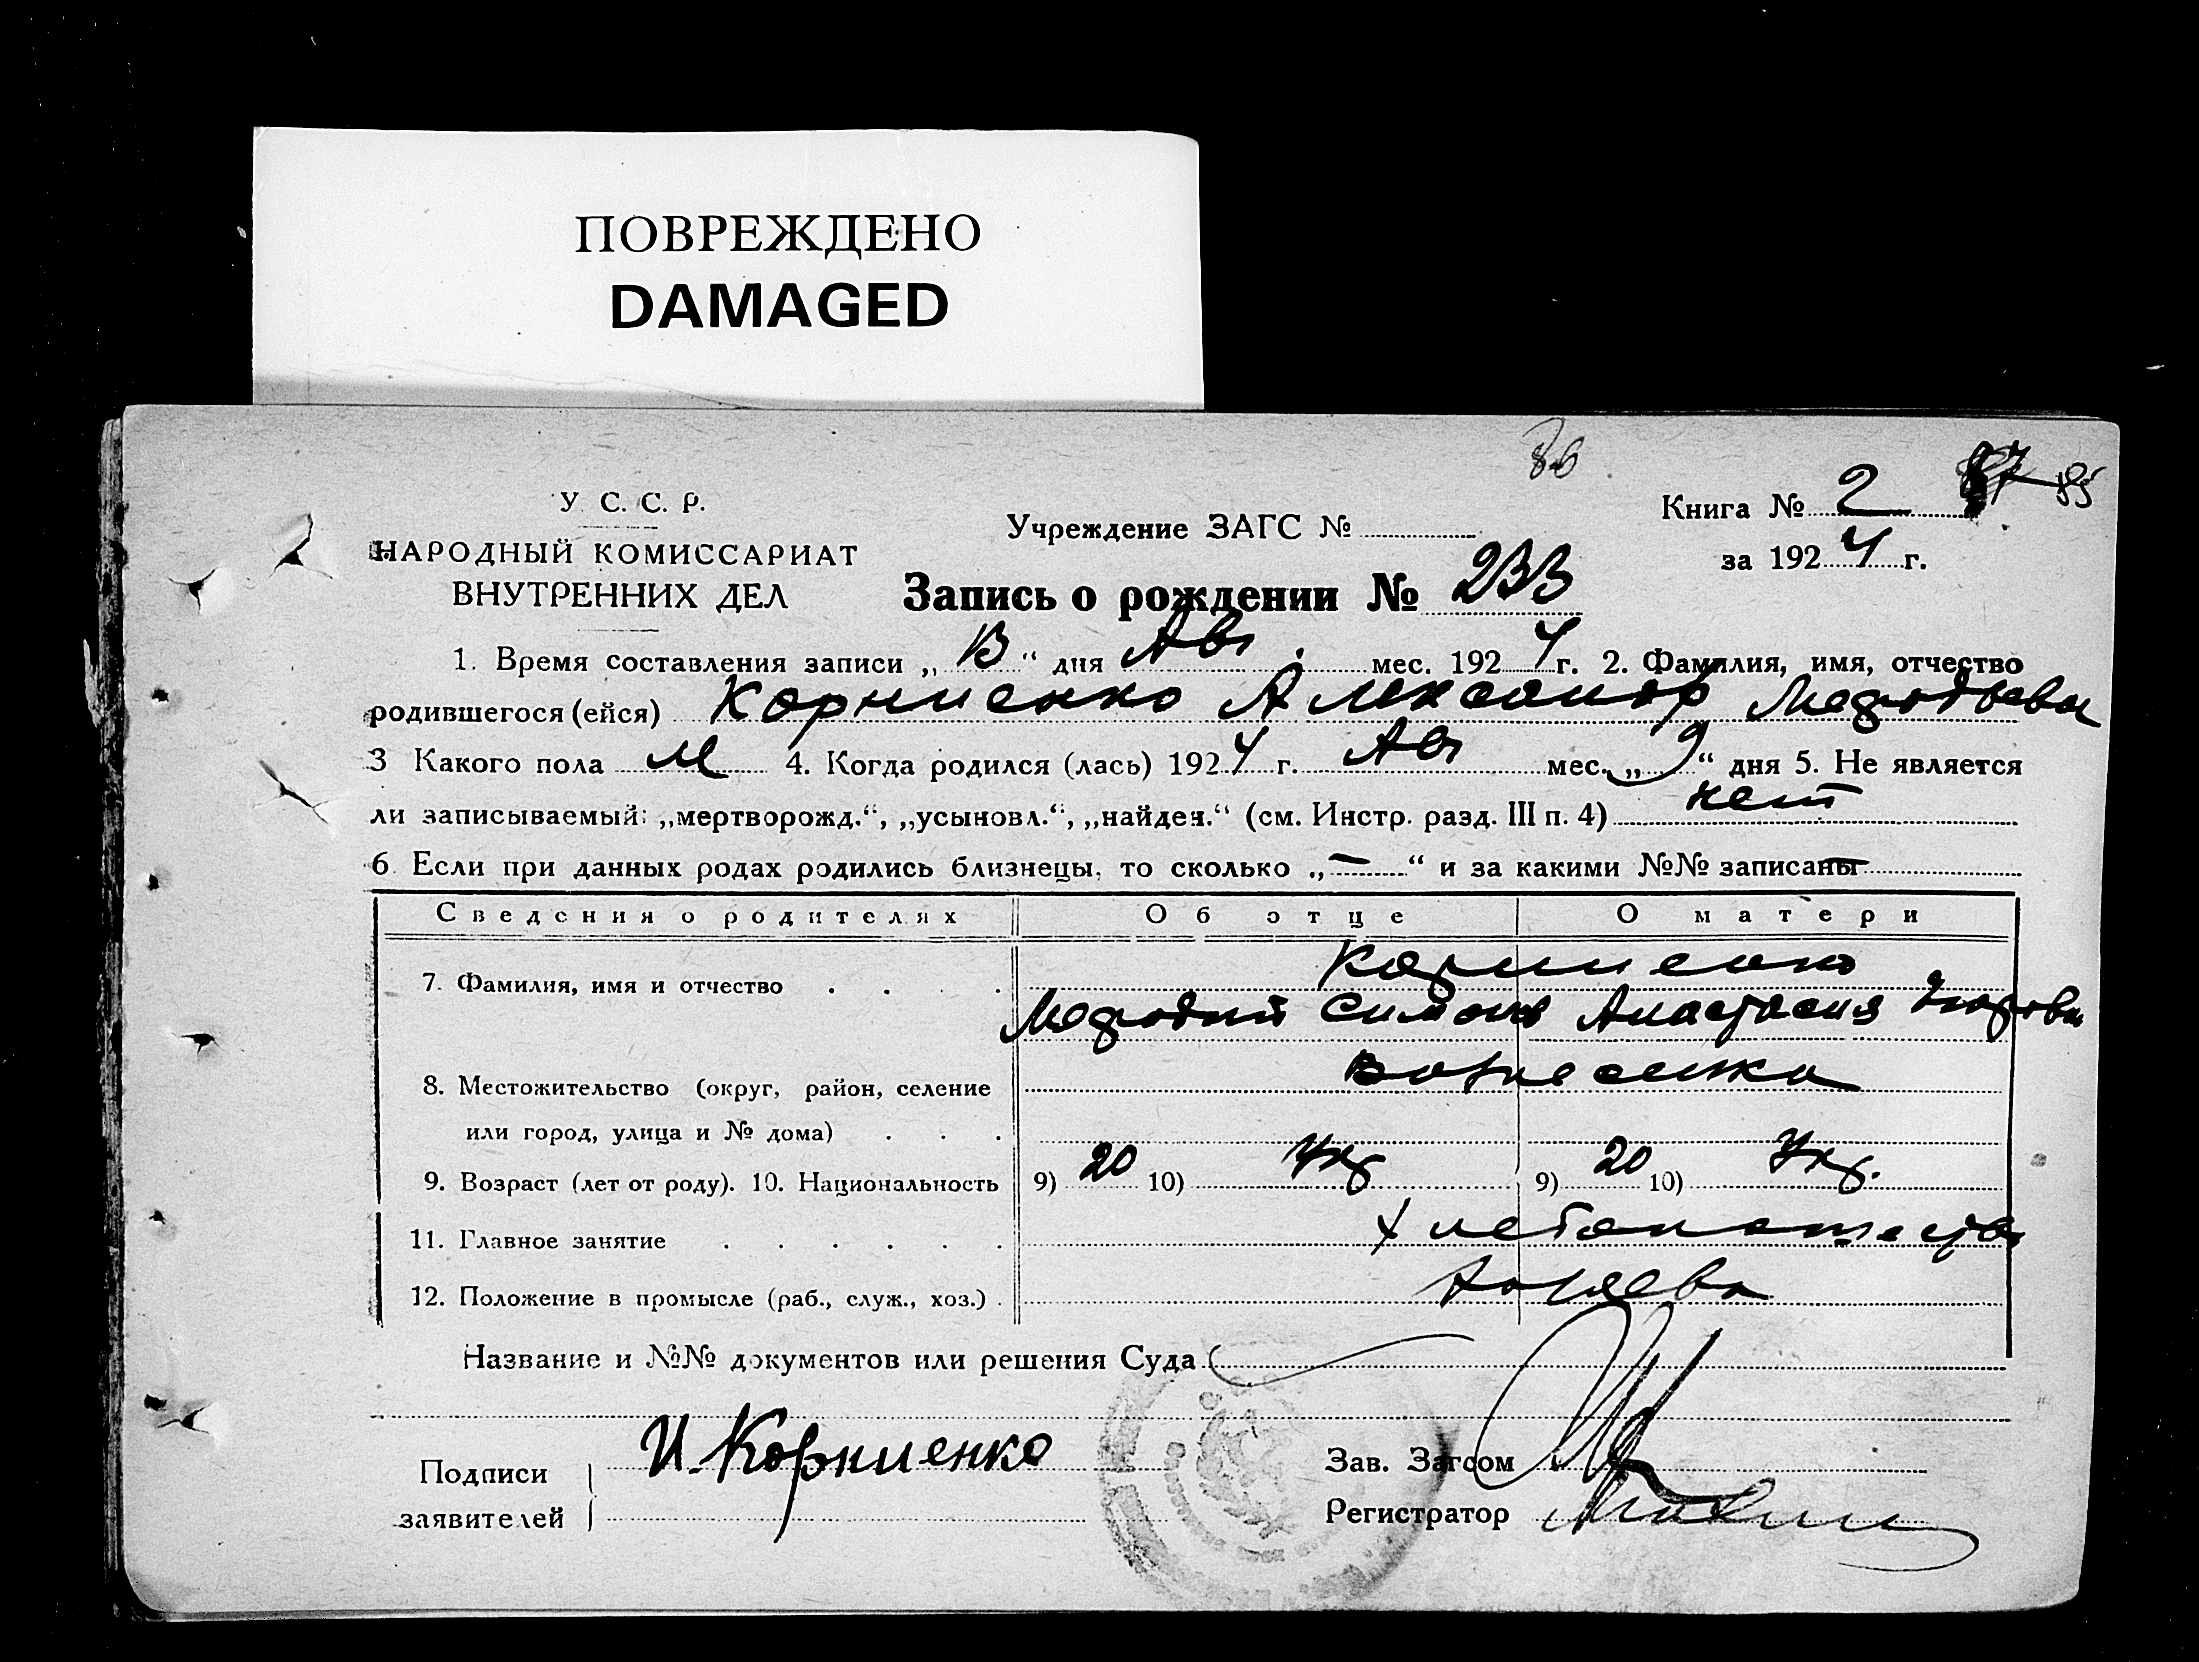 ПОВРЕЖДЕНО
DAMAGED
86 87 85
У. С. С. Р.
НАРОДНЫЙ КОМИССАРИАТ
ВНУТРЕННИХ ДЕЛ
Учреждение ЗАГС №
Книга № 2
за 1924 г.
Запись о рождении № 233
1. Время составления записи „13“ дня Авг. мес. 1924 г. 2. Фамилия, имя, отчество
родившегося (ейся) Корниенко Александр Мефодьевич
3 Какого пола м 4. Когда родился (лась) 1924 г. Авг мес. „9“ дня 5. Не является
ли записываемый: „мертворожд.“, „усыновл.“, „найден.“ (см. Инстр. разд. III п. 4) нет
6. Если при данных родах родились близнецы, то сколько „—“ и за какими №№ записаны —
Сведения о родителях Об отце О матери
7. Фамилия, имя и отчество Корниенко
Мефодий Симонов Анастасия
8. Местожительство (округ, район, селение
или город, улица и № дома) Вознесенка
9. Возраст (лет от роду). 10. Национальность 9) 20 10) Укр 9) 20 10) Укр.
11. Главное занятие Хлебопашество
12. Положение в промысле (раб., служ., хоз.) Хозяева
Название и №№ документов или решения Суда
Подписи заявителей И. Корниенко
Зав. Загсом
Регистратор